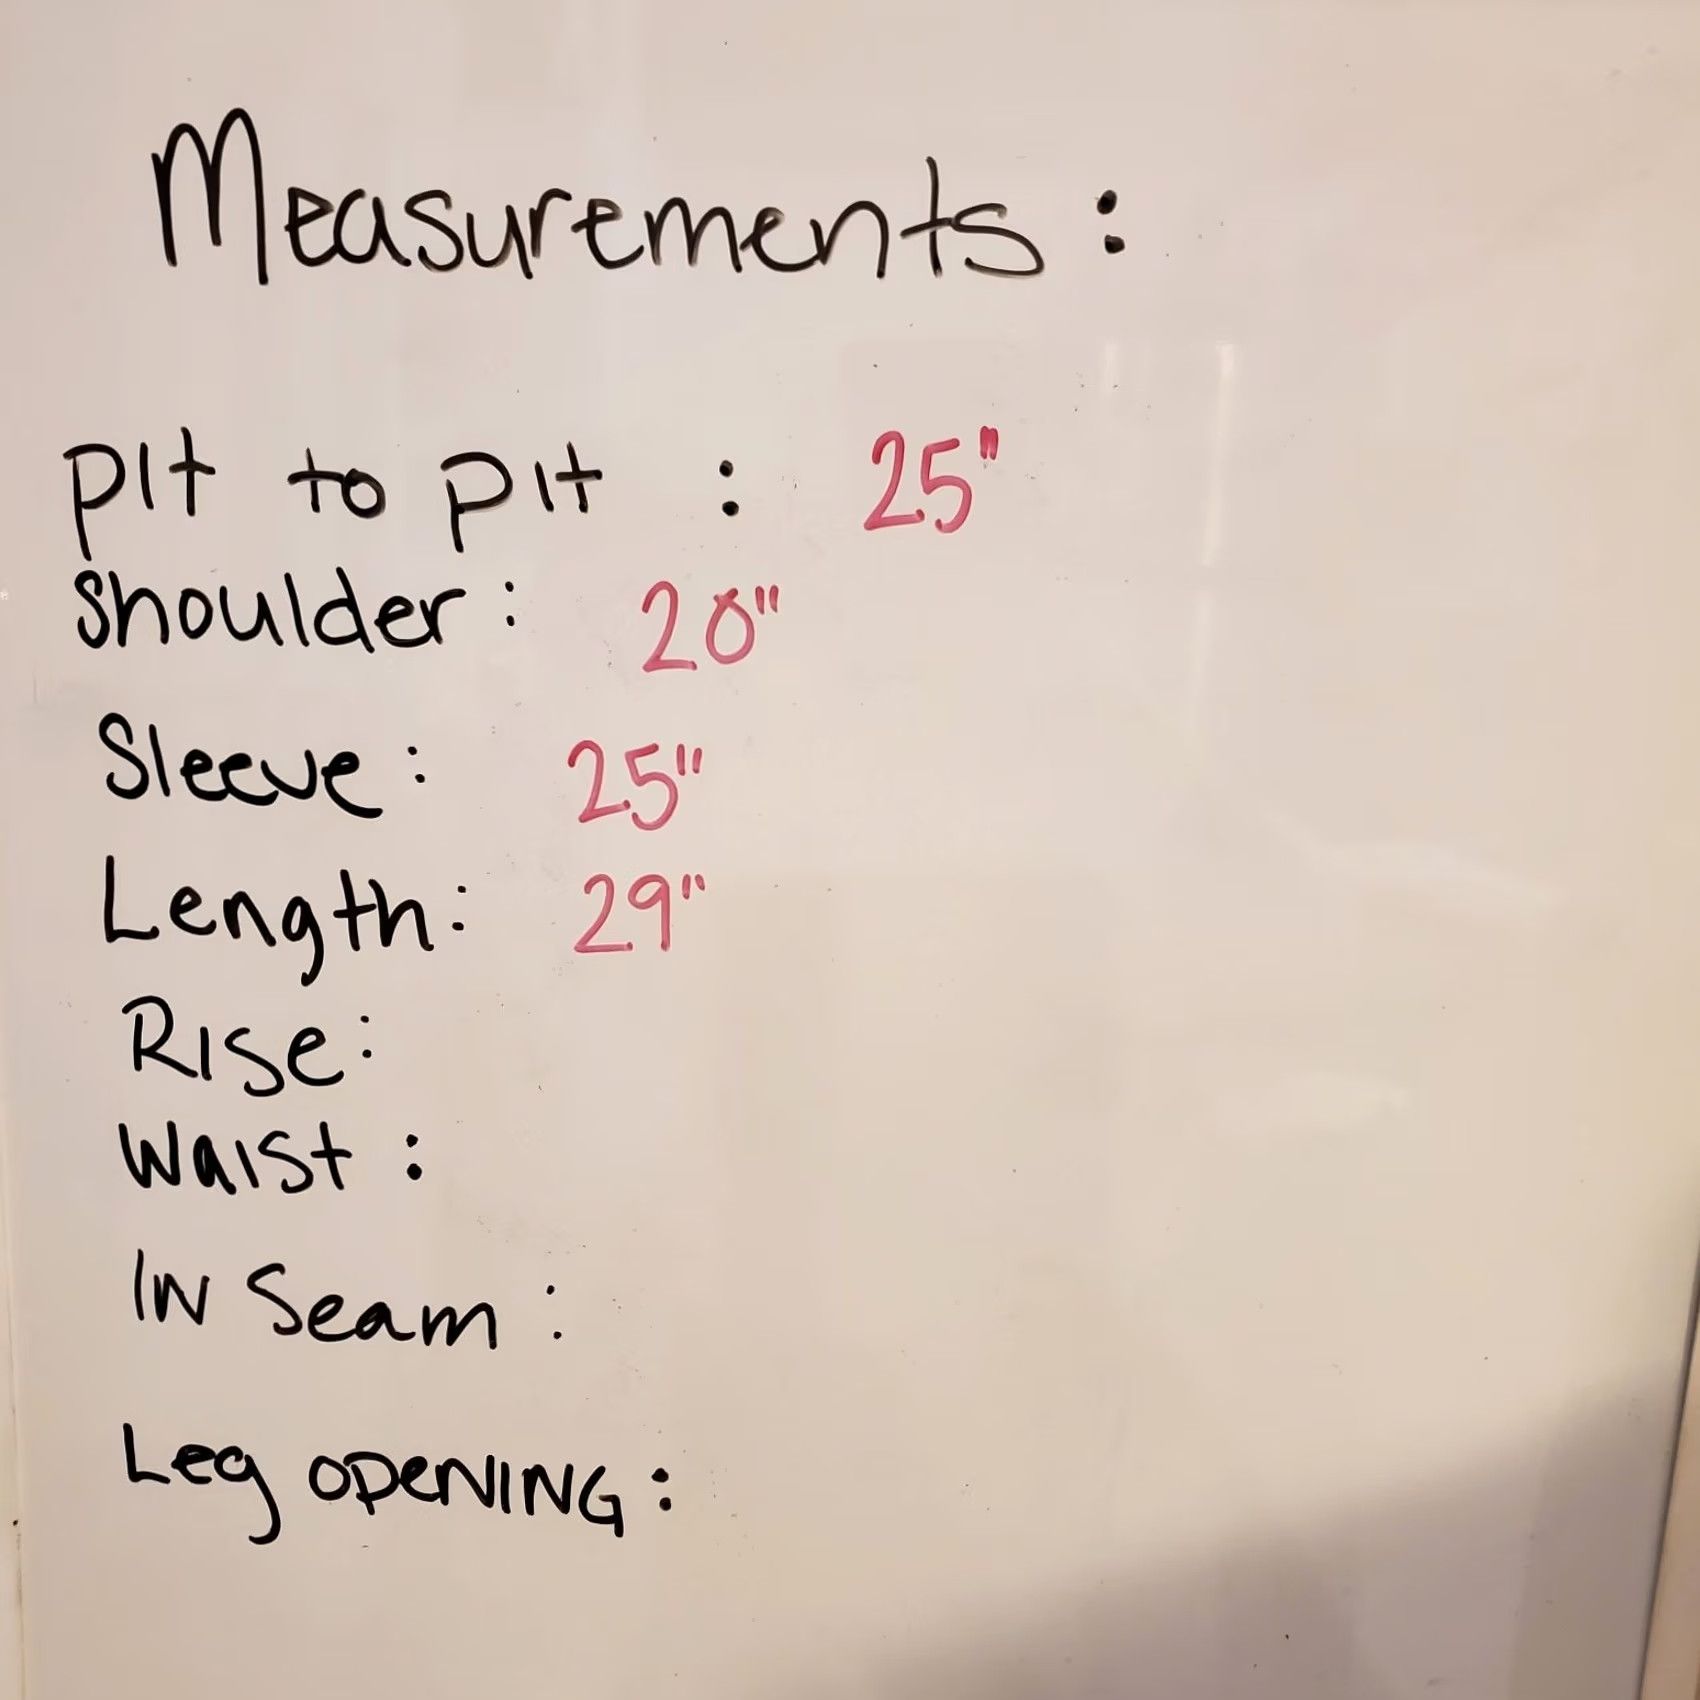 Measurements:
pit to pit : 25"
Shoulder: 20"
Sleeve: 25"
Length: 29"
Rise:
Waist:
IN Seam:
Leg OPENING: